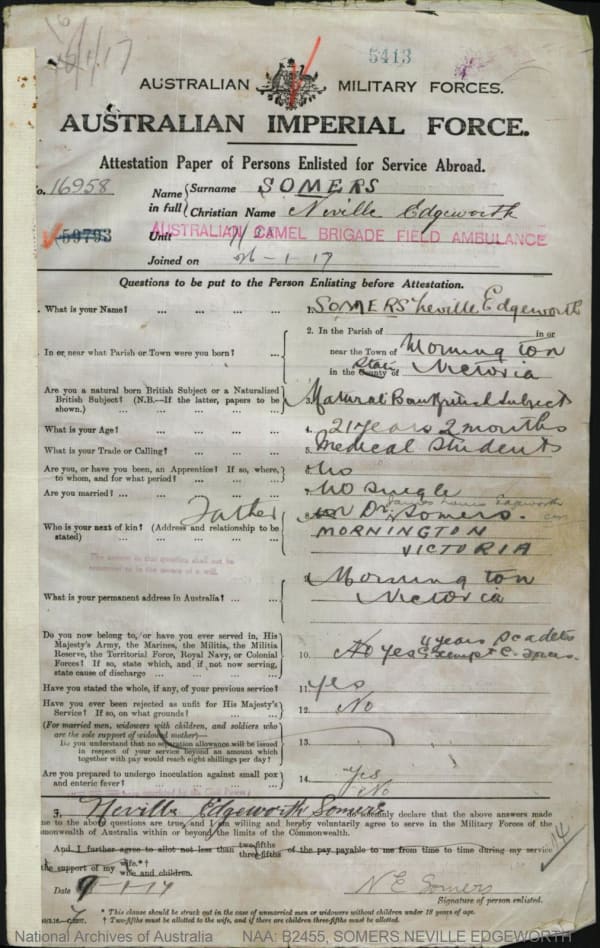 5413
AUSTRALIAN MILITARY FORCES.
AUSTRALIAN IMPERIAL FORCE.
Attestation Paper of Persons Enlisted for Service Abroad.
No. 16958
Name in full { Surname SOMERS
Christian Name Neville Edgeworth
59793
Unit AUSTRALIAN CAMEL BRIGADE FIELD AMBULANCE
Joined on -1-17
Questions to be put to the Person Enlisting before Attestation.
What is your Name? ... ... ... ... 1. SOMERS Neville Edgeworth
In or near what Parish or Town were you born? ... 2. In the Parish of in or
near the Town of Mornington
in the County of State Victoria
Are you a natural born British Subject or a Naturalized British Subject? (N.B.—If the latter, papers to be shown.) ... 3. Natural Born British Subject
What is your Age? ... ... ... ... 4. 21 years 2 months
What is your Trade or Calling? ... ... ... 5. Medical Student
Are you, or have you been, an Apprentice? If so, where, to whom, and for what period? ... 6. No
Are you married? ... ... ... ... 7. No Single
Who is your next of kin? (Address and relationship to be stated) ... Father 8. Dr. Edgeworth Somers.
MORNINGTON
VICTORIA
What is your permanent address in Australia? ... 9. Mornington
Victoria
Do you now belong to, or have you ever served in, His Majesty's Army, the Marines, the Militia, the Militia Reserve, the Territorial Force, Royal Navy, or Colonial Forces? If so, state which, and if not now serving, state cause of discharge ... 10. No Yes 4 years S cadets
exempt
Have you stated the whole, if any, of your previous service? 11. Yes
Have you ever been rejected as unfit for His Majesty's Service? If so, on what grounds? ... 12. No
(For married men, widowers with children, and soldiers who are the sole support of widowed mother)—
Do you understand that no separation allowance will be issued in respect of your service beyond an amount which together with pay would reach eight shillings per day? 13.
Are you prepared to undergo inoculation against small pox and enteric fever? ... 14. Yes
No
I, Neville Edgeworth Somers do solemnly declare that the above answers made
me to the above questions are true, and I am willing and hereby voluntarily agree to serve in the Military Forces of the
monwealth of Australia within or beyond the limits of the Commonwealth.
And I further agree to allot not less than two-fifths three-fifths of the pay payable to me from time to time during my service
the support of my wife.*† wife and children.
Date 9-1-17
N E Somers
Signature of person enlisted.
* This clause should be struck out in the case of unmarried men or widowers without children under 18 years of age.
† Two-fifths must be allotted to the wife, and if there are children three-fifths must be allotted.
National Archives of Australia NAA: B2455, SOMERS NEVILLE EDGEWORTH